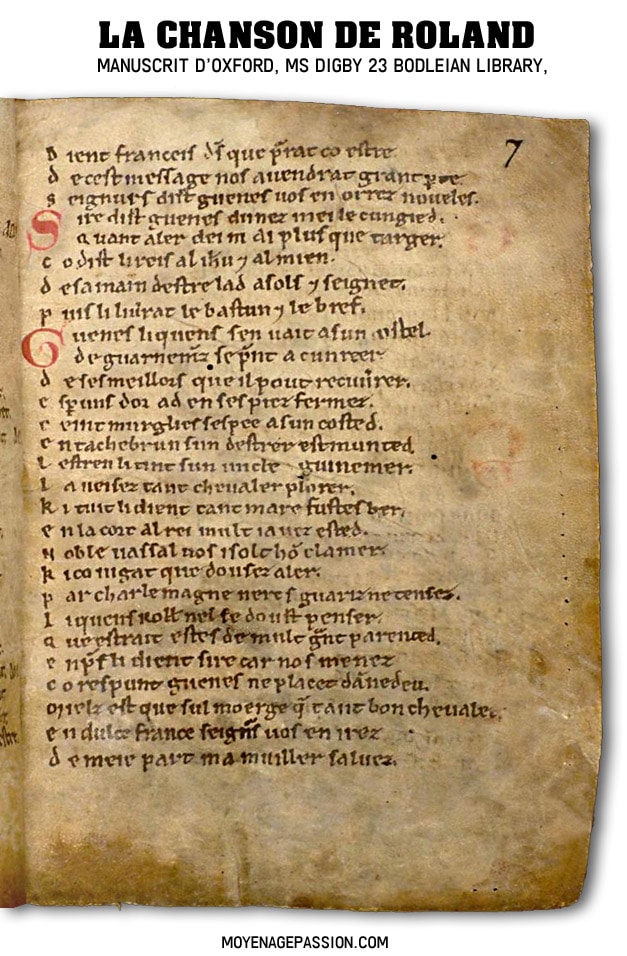 LA CHANSON DE ROLAND
MANUSCRIT D'OXFORD, MS DIGBY 23 BODLEIAN LIBRARY,
7
D ient franceis d̄s que p̄rat co estre
d e cest message nos auendrat grant ꝑte
s eignurs dist guenes uos en orrez noueles.
S ire dist guenes dunez mei le cungied.
Q uant aler dei ni ai plus que targer.
c o dist li reis al ih̄u ⁊ al mien.
d e sa main destre lad asols ⁊ seignet.
p uis li liurat le bastun ⁊ le bref.
G uenes li quens sen uait a sun ostel
de guarnem̄z se p̄nt a cunreer
d e ses meillors que il pout recuurer.
e sꝑuns dor ad en ses piez fermez.
c eint murglies sespee a sun costed.
e n tachebrun sun destrer est munted
l estreu li tint sun uncle guinemer.
l a ueisez tant cheualer plorer.
k i tuit li dient tant mare fustes ber.
e n la cort al rei mult i auez ested.
N oble uassal uos i solt hō clamer
k i co iugat que dousez aler.
p ar charlemagne nert guariz ne tensez.
l i quens roll̄ nel se doust penser.
q ue estrait estes de mult g̃nt parented.
e np̃s li dient sire car nos menez
c o respunt guenes ne placet dānedeu.
mielz est que sul moerge q̄ tant bon cheualer.
e n dulce france seign̄s uos en irez
d e meie part ma muiller saluez.
MOYENAGEPASSION.COM